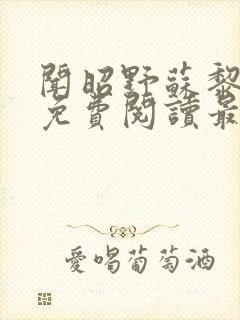 聞昭野蘇黎
免費閱讀最
愛喝葡萄酒